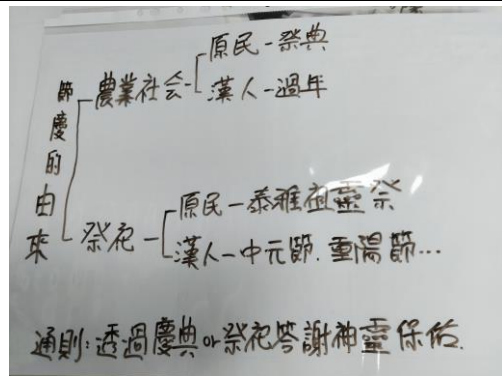 節慶的由來
農業社会
原民-祭典
漢人-過年
祭祀
原民-泰雅祖靈祭
漢人-中元節.重陽節…
通則:透過慶典or祭祀答謝神靈保佑.